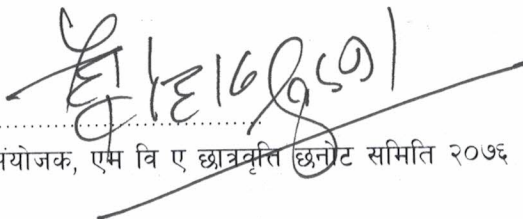 संयोजक, एम वि ए छात्रवृत्ति छनोट समिति २०७६